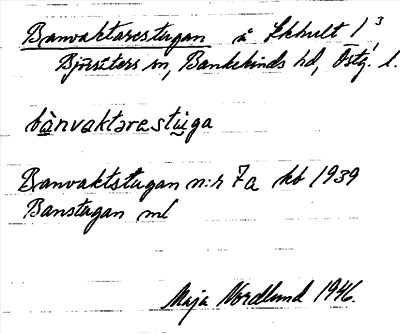 Banvaktarestugan å Ekhult 1³
Björsäters sn, Bankekinds hd, Östg. l.
bànvaktarestùga
Banvaktstugan n:r 7a kb 1939
Banstugan ml
Maja Nordlund 1946.